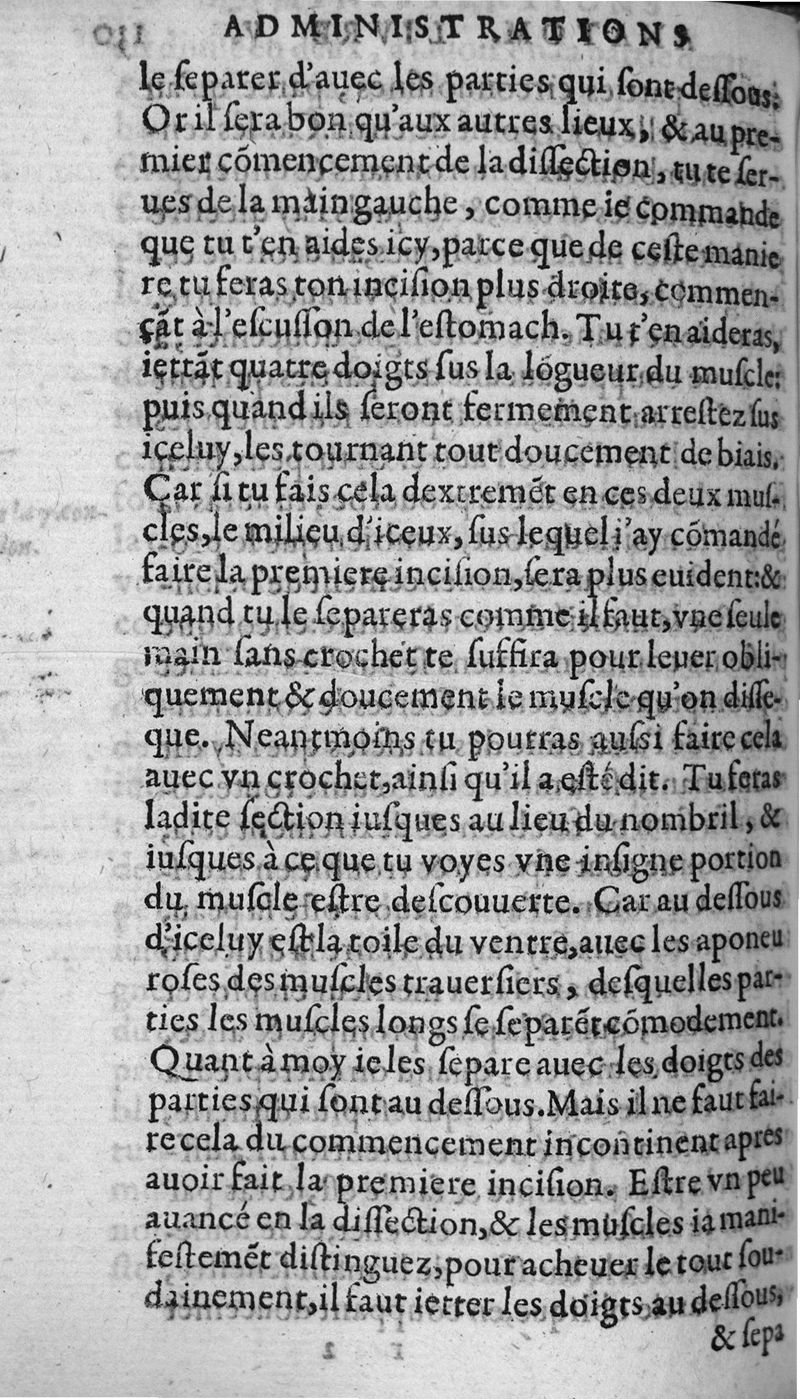 ADMINISTRATIONS
le ſeparer d'auec les parties qui ſont deſſous.
Or il ſera bon qu'aux autres lieux, & au pre-
mier cõmencement de la diſſection, tu te ſer-
ues de la main gauche, comme ie commande
que tu t'en aides icy, parce que de ceſte manie
re tu feras ton inciſion plus droite, commen-
çãt à l'eſcuſſon de l'eſtomach. Tu t'en aideras,
iettãt quatre doigts ſus la lõgueur du muſcle:
puis quand ils ſeront fermement arreſtez ſus
iceluy, les tournant tout doucement de biais.
Car ſi tu fais cela dextremẽt en ces deux muſ-
cles, le milieu d'iceux, ſus lequel i'ay cõmandé
faire la premiere inciſion, ſera plus euident: &
quand tu le ſepareras comme il faut, vne ſeule
main ſans crochet te ſuffira pour leuer obli-
quement & doucement le muſcle qu'on diſſe-
que. Neantmoins tu pourras auſsi faire cela
auec vn crochet, ainſi qu'il a eſté dit. Tu feras
ladite ſection iuſques au lieu du nombril, &
iuſques à ce que tu voyes vne inſigne portion
du muſcle eſtre deſcouuerte. Car au deſſous
d'iceluy eſt la toile du ventre, auec les aponeu
roſes des muſcles trauerſiers, deſquelles par-
ties les muſcles longs ſe ſeparẽt cõmodement.
Quant à moy ie les ſepare auec les doigts des
parties qui ſont au deſſous. Mais il ne faut fai-
re cela du commencement incontinent apres
auoir fait la premiere inciſion. Eſtre vn peu
auancé en la diſſection, & les muſcles ia mani-
feſtemẽt diſtinguez, pour acheuer le tout ſou-
dainement, il faut ietter les doigts au deſſous,
& ſepa